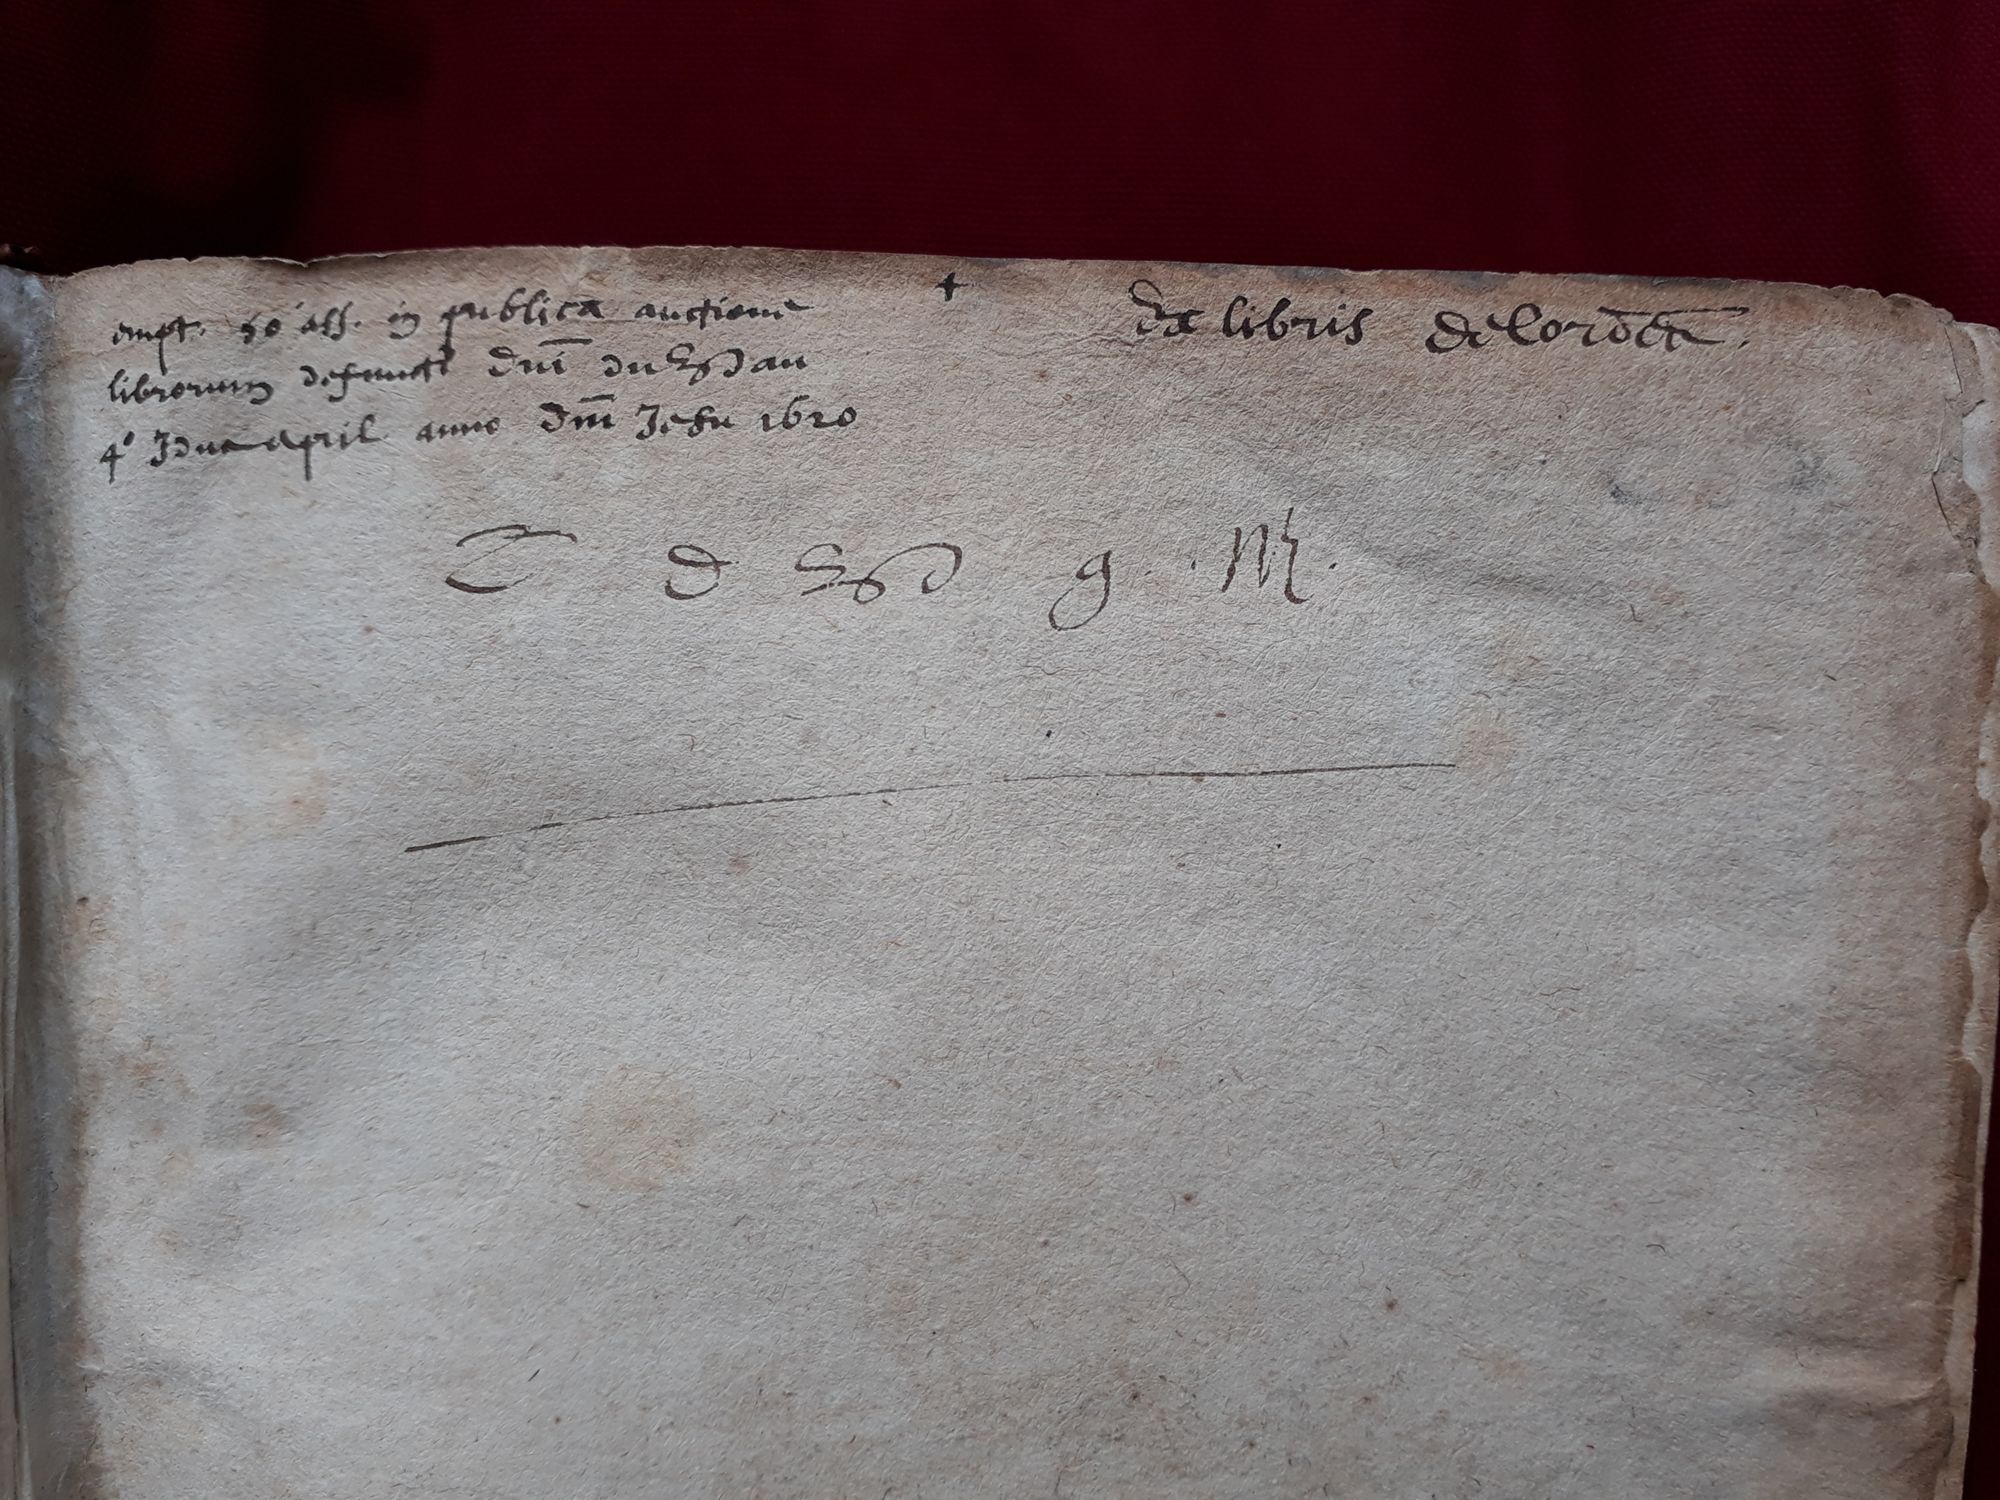 empt. 50 ass. in publica auctione
librorum defuncti dn̄i du
4° Idus april. anno dn̄i Jesu 1620
+
Ex libris
C d g. M.